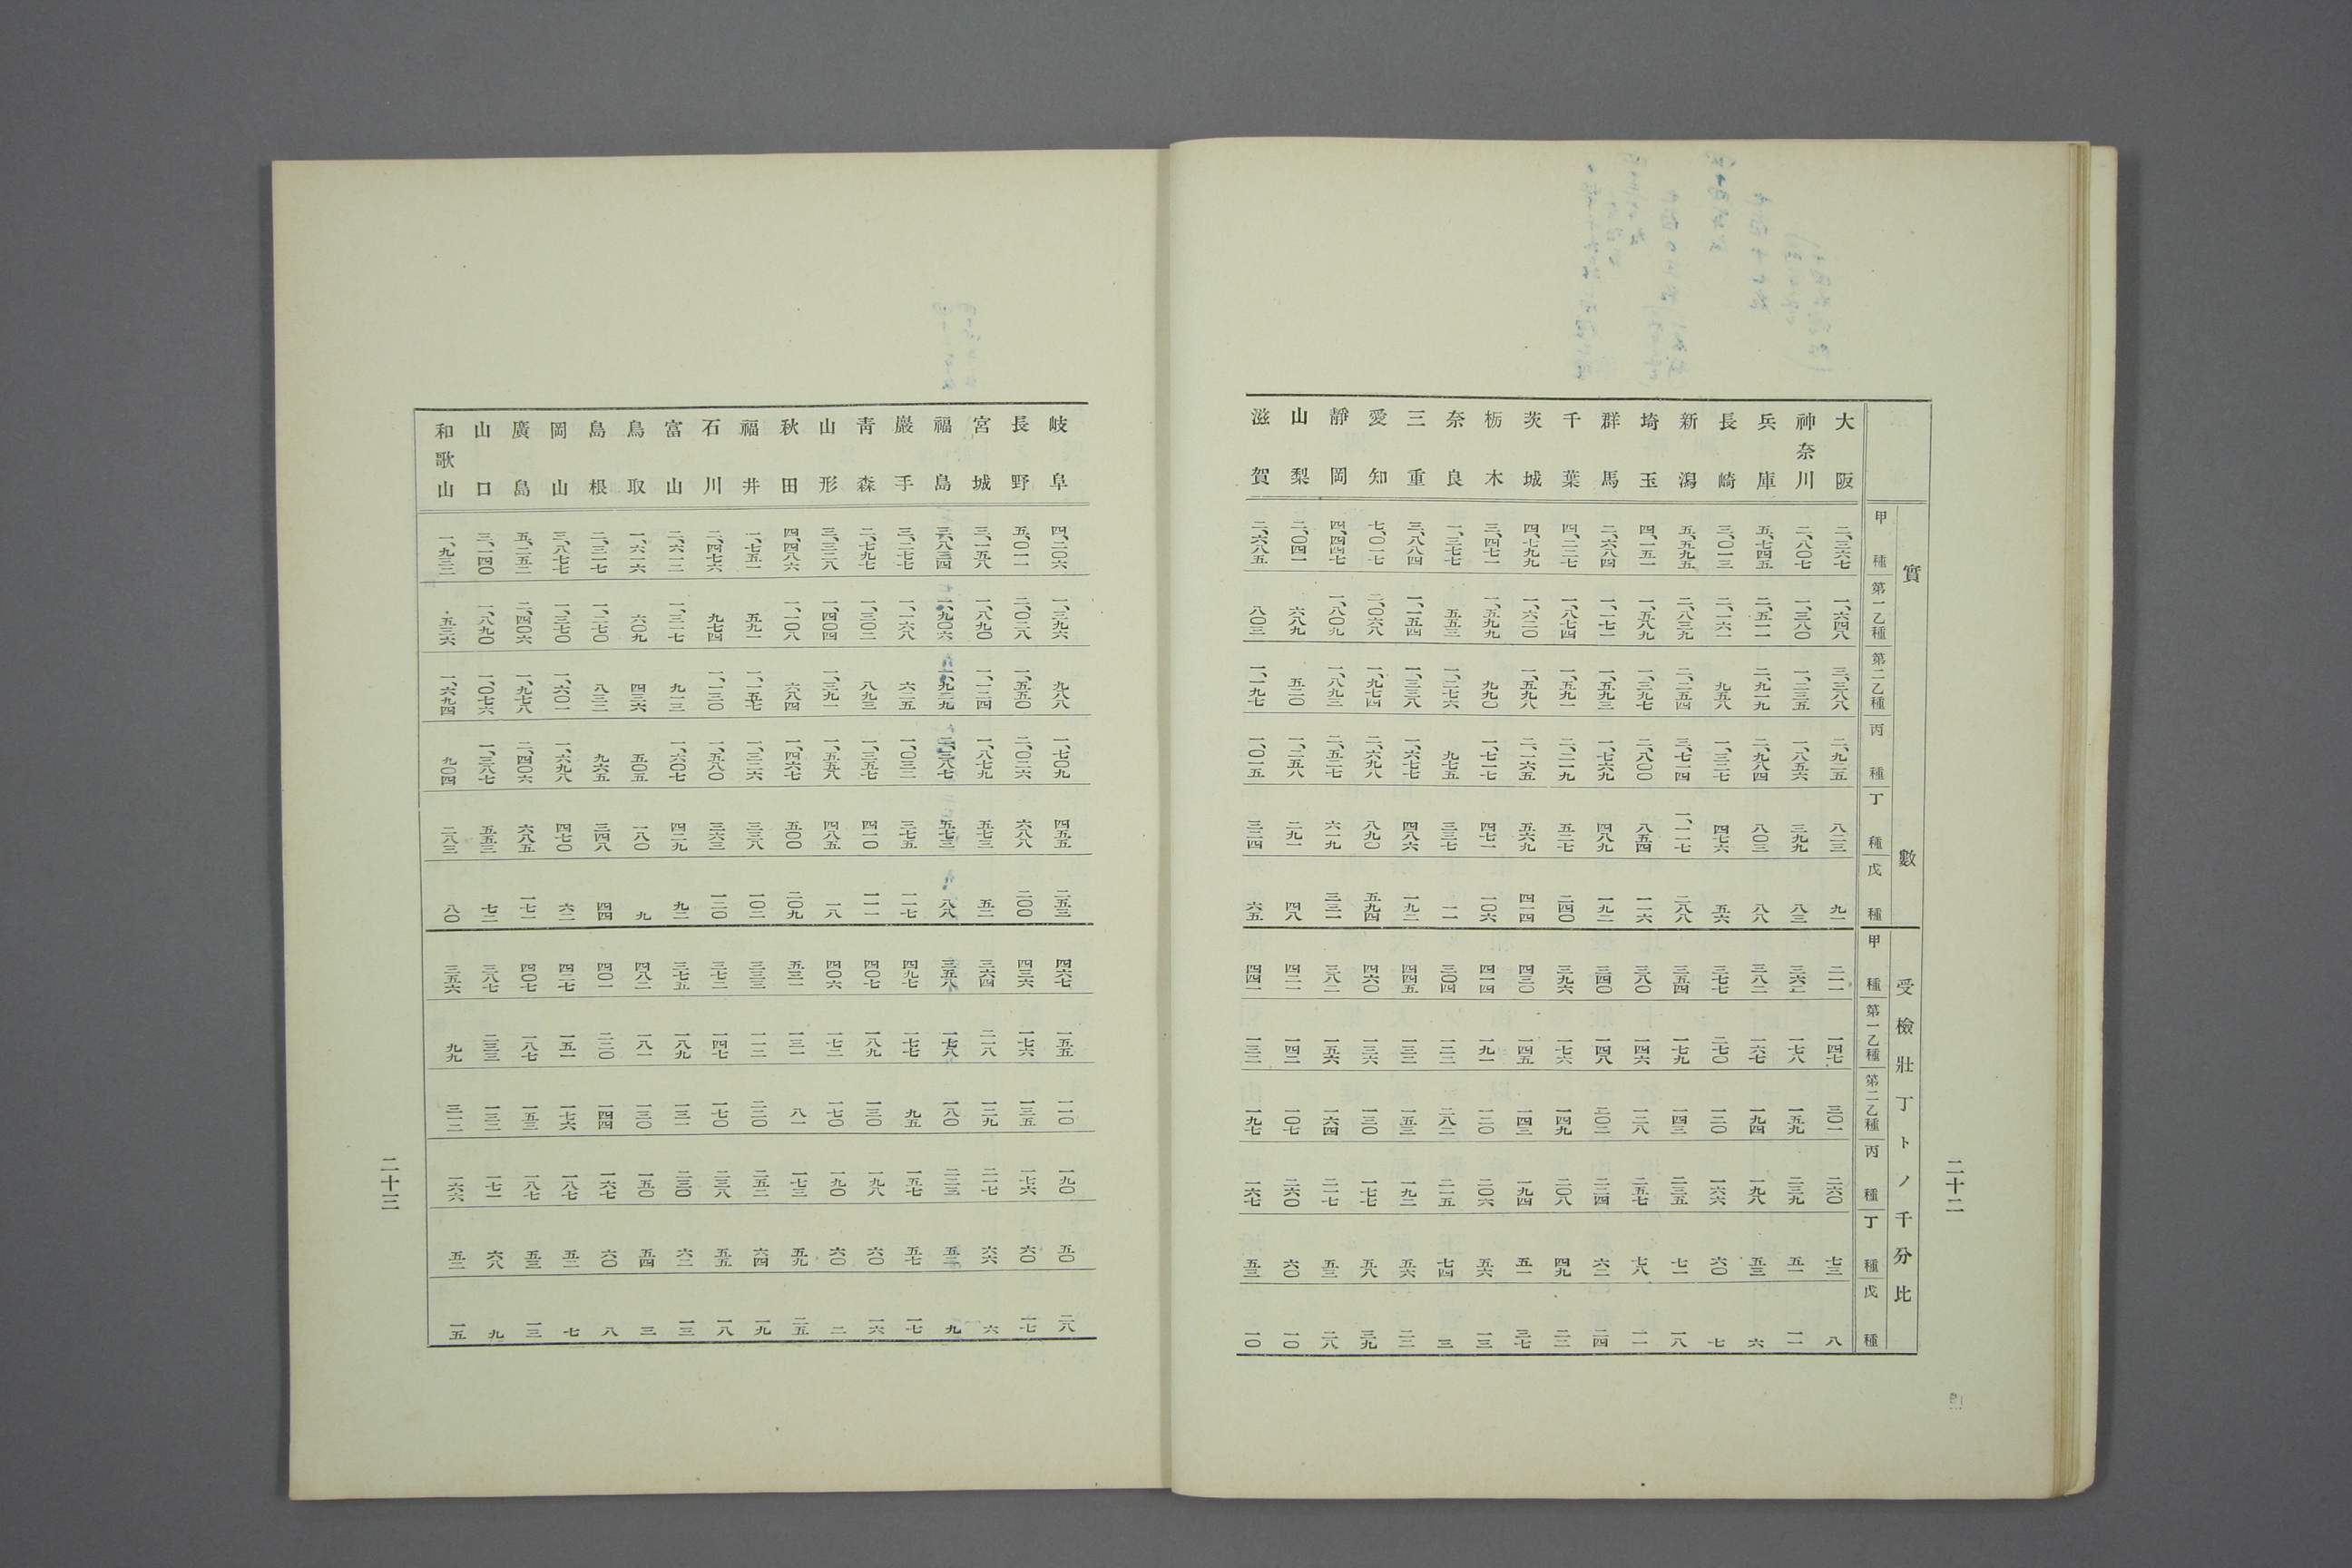 實數
受檢壯丁トノ千分比
甲種 第一乙種 第二乙種 丙種 丁種 戊種 甲種 第一乙種 第二乙種 丙種 丁種 戊種
大阪 二、三六七 一、六四八 三、三八八 二、九二五 八二三 九一 二一一 一四七 三〇一 二六〇 七三 八
神奈川 二、八〇七 一、三八〇 一、二三五 一、八五六 三九九 八三 三六二 一七八 一五九 二三九 五一 一一
兵庫 五、七四五 二、五一一 二、九一九 二、九八四 八〇三 八八 三八二 一六七 一九四 一九八 五三 六
長崎 三、〇一三 二、一六一 九五八 一、三二七 四七六 五六 三七七 二七〇 一二〇 一六六 六〇 七
新潟 五、五九五 二、八三九 二、二五四 三、七一四 一、一一七 二八八 三五四 一七九 一四三 二三五 七一 一八
埼玉 四、一五一 一、五八九 一、三九七 二、八〇〇 八五四 一一六 三八〇 一四六 一二八 二五七 七八 一一
群馬 二、六八四 一、一七一 一、五九三 一、七六九 四八九 一九二 三四〇 一四八 二〇二 二二四 六二 二四
千葉 四、二二七 一、八七四 一、五九一 二、二一九 五二七 二四〇 三九六 一七六 一四九 二〇八 四九 二二
茨城 四、七九九 一、六二〇 一、五九八 二、一六五 五六九 四一四 四三〇 一四五 一四三 一九四 五一 三七
栃木 三、四七一 一、五九九 九九〇 一、七一七 四七一 一〇六 四一四 一九一 一二〇 二〇六 五六 一三
奈良 一、三七七 五五三 一、二七六 九七五 三三七 一一 三〇四 一二二 二八二 二一五 七四 三
三重 三、八八四 一、一五四 一、三三八 一、六七七 四八六 一九二 四四五 一三二 一五三 一九二 五六 二二
愛知 七、〇一七 二、〇六八 一、九七四 二、六九八 八九〇 五九四 四六〇 一三六 一三〇 一七七 五八 三九
靜岡 四、四四七 一、八〇九 一、八九三 二、五二七 六一九 三三一 三八二 一五六 一六四 二一七 五三 二八
山梨 二、〇四一 六八九 五二〇 一、二五八 二九一 四八 四二一 一四二 一〇七 二六〇 六〇 一〇
滋賀 二、六八五 八〇三 一、一九七 一、〇一五 三二四 六五 四四一 一三二 一九七 一六七 五三 一〇
二十二
岐阜 四、二〇六 一、三九六 九八八 一、七〇九 四五五 二五三 四六七 一五五 一一〇 一九〇 五〇 二八
長野 五、〇一一 二、〇二八 一、五五〇 二、〇二六 六八八 二〇〇 四三六 一七六 一三五 一七六 六〇 一七
宮城 三、一五八 一、八九〇 一、一二四 一、八七九 五七三 五二 三六四 二一八 一二九 二一七 六六 六
福島 三、八三四 一、九〇六 一、九二九 二、三八七 五七三 八八 三五八 一七八 一八〇 二二三 五三 九
巖手 三、二七七 一、一六八 六二五 一、〇三二 三七五 一一七 四九七 一七七 九五 一五七 五七 一七
靑森 二、七九七 一、三〇二 八九三 一、三五七 四一〇 一一一 四〇七 一八九 一三〇 一九八 六〇 一六
山形 三、三二八 一、四〇四 一、三九一 一、五五八 四八五 一八 四〇六 一七二 一七〇 一九〇 六〇 二
秋田 四、四八六 一、一〇八 六八四 一、四六七 五〇〇 二〇九 五三一 一三一 八一 一七三 五九 二五
福井 一、七五一 五九一 一、一五七 一、三二六 三三八 一〇二 三三三 一一二 二二〇 二五二 六四 一九
石川 二、四七六 九七四 一、一三〇 一、五八〇 三六三 一二〇 三七二 一四七 一七〇 二三八 五五 一八
富山 二、六一二 一、三一七 九一三 一、六〇七 四二九 九二 三七五 一八九 一三一 二三〇 六二 一三
鳥取 一、六一六 六〇九 四三六 五〇五 一八〇 九 四八二 一八一 一三〇 一五〇 五四 三
島根 二、三一七 一、二七〇 八三二 九六五 三四八 四四 四〇一 二二〇 一四四 一六七 六〇 八
岡山 三、八七七 一、三七〇 一、六〇一 一、六九八 四七〇 六二 四二七 一五一 一七六 一八七 五二 七
廣島 五、二五二 二、四〇六 一、九七八 二、四〇六 六八五 一七一 四〇七 一八七 一五三 一八七 五三 一三
山口 三、一四〇 一、八九〇 一、〇七六 一、三八七 五五三 七二 三八七 二三三 一三二 一七一 六八 九
和歌山 一、九三二 五三六 一、六九四 九〇四 二八三 八〇 三五六 九九 三一二 一六六 五二 一五
二十三